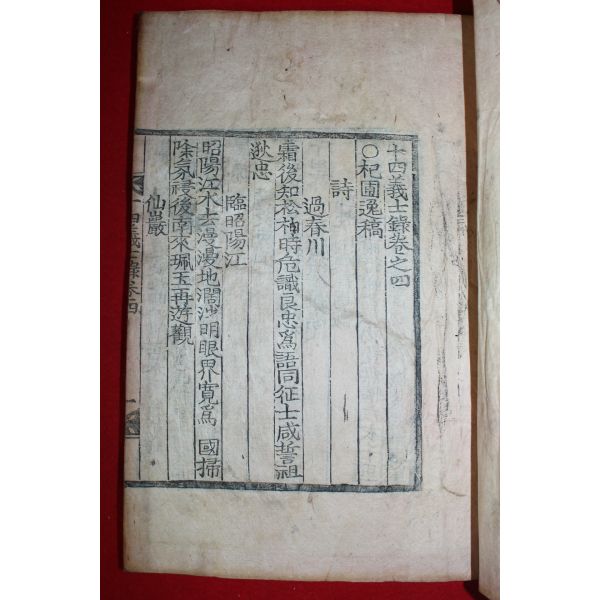 十四義士錄卷之四
○杞圃逸稿
詩
過春川
霜後知松柏時危識良忠爲語同征士咸誓祖
逖忠
臨昭陽江
昭陽江水去漫漫地濶沙明眼界寬爲 國掃
除氛祲後南來珮玉再遊觀
仙巖
十四義士錄卷四 一